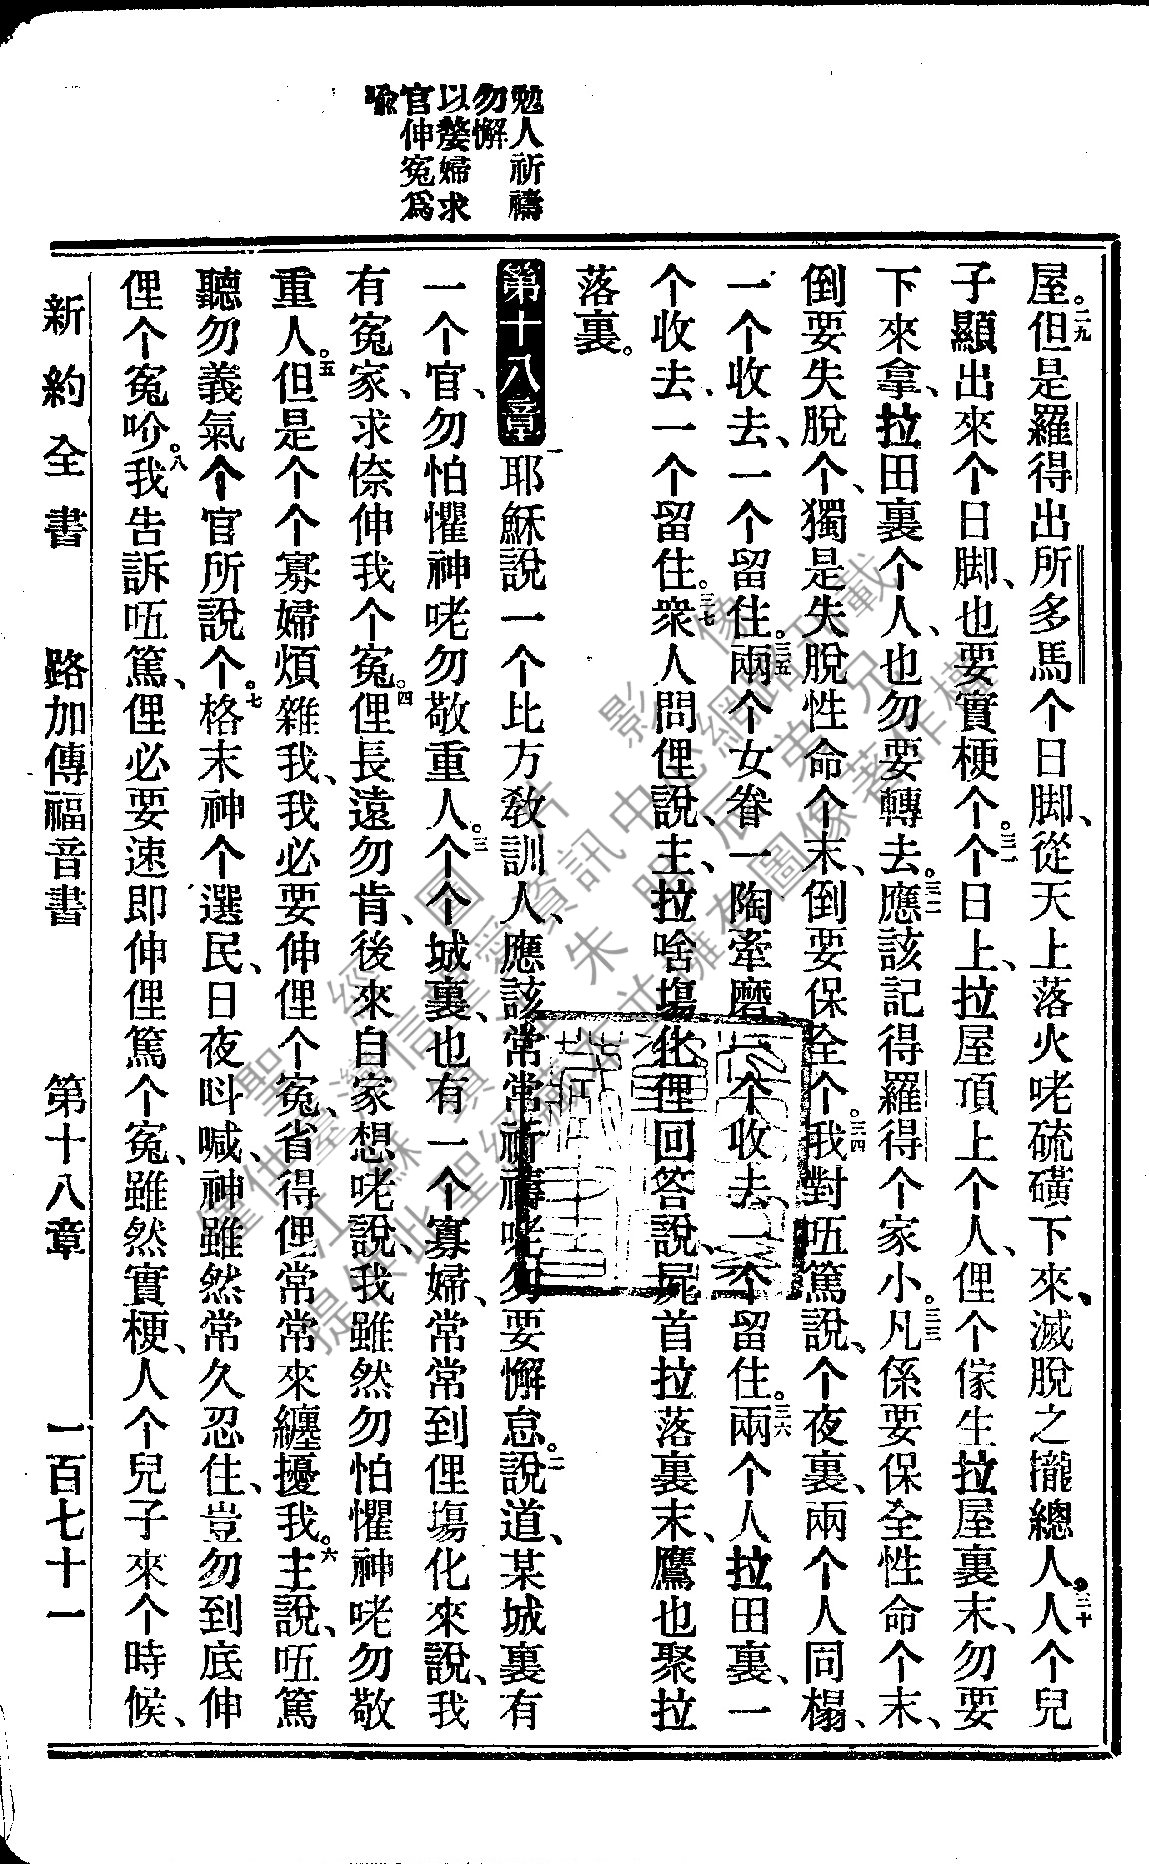 勉人祈禱
勿懈
以嫠婦求
官伸寃爲
喩
屋。二九但是羅得出所多馬个日脚、從天上落火咾硫磺下來、滅脫之攏總人。三十人个兒
子顯出來个日脚、也要實梗个。三一个日上、拉屋頂上个人、俚个傢生拉屋裏末、勿要
下來拿、拉田裏个人、也勿要轉去。三二應該記得羅得个家小。三三凡係要保全性命个末、
倒要失脫个、獨是失脫性命个末、倒要保全个。三四我對㕶篤說、个夜裏、兩个人同榻、
一个收去、一个留住。三五兩个女眷一陶牽磨、一个收去、一个留住。三六兩个人拉田裏、一
个收去、一个留住。三七衆人問俚說、主、拉啥塲化、俚回答說、屍首拉落裏末、鷹也聚拉
落裏。
第十八章 一耶穌說一个比方敎訓人、應該常常祈禱咾勿要懈怠。二說道、某城裏有
一个官、勿怕懼神咾勿敬重人。三个个城裏、也有一个寡婦、常常到俚塲化來說、我
有寃家、求倷伸我个寃。四俚長遠勿肯、後來自家想咾說、我雖然勿怕懼神咾勿敬
重人。五但是个个寡婦煩雜我、我必要伸俚个寃、省得俚常常來纏擾我。六主說、㕶篤
聽勿義氣个官所說个。七格末神个選民、日夜呌喊、神雖然常久忍住、豈勿到底伸
俚个寃吤。八我告訴㕶篤、俚必要速即伸俚篤个寃、雖然實梗、人个兒子來个時候、
新約全書　路加傳福音書　第十八章　一百七十一